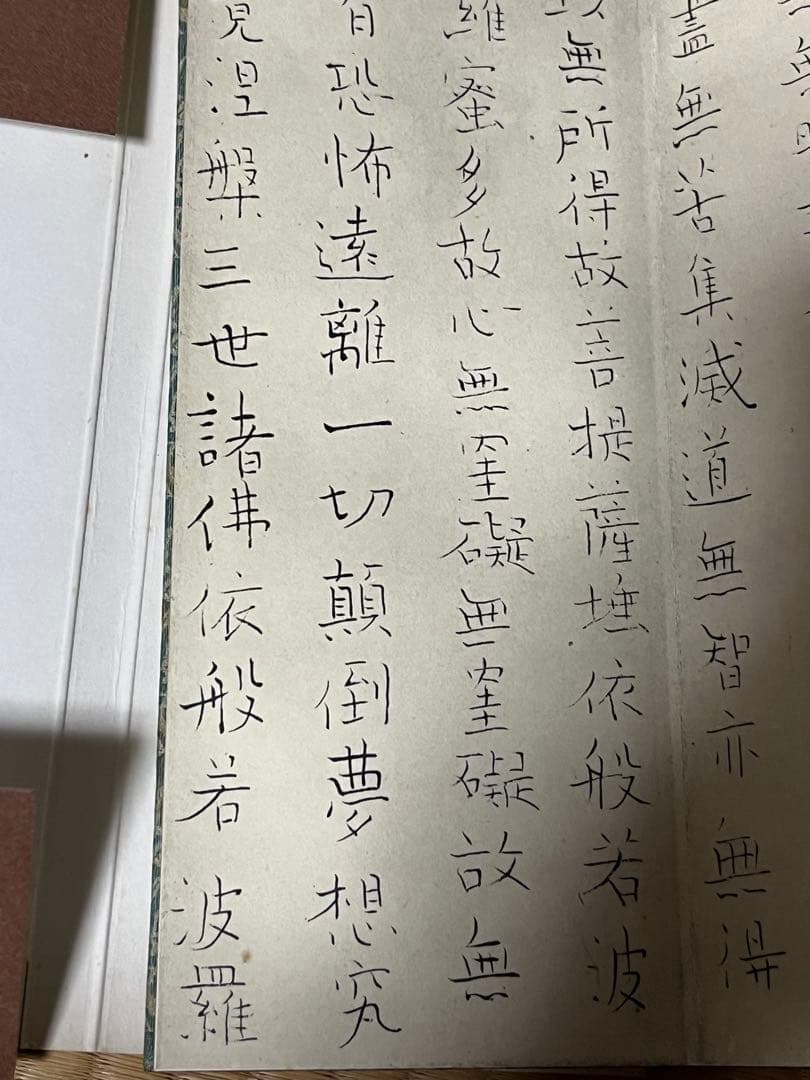 無
盡無苦集滅道無智亦無得
以無所得故菩提薩埵依般若波
羅蜜多故心無罣礙無罣礙故無
有恐怖遠離一切顛倒夢想究
竟涅槃三世諸佛依般若波羅